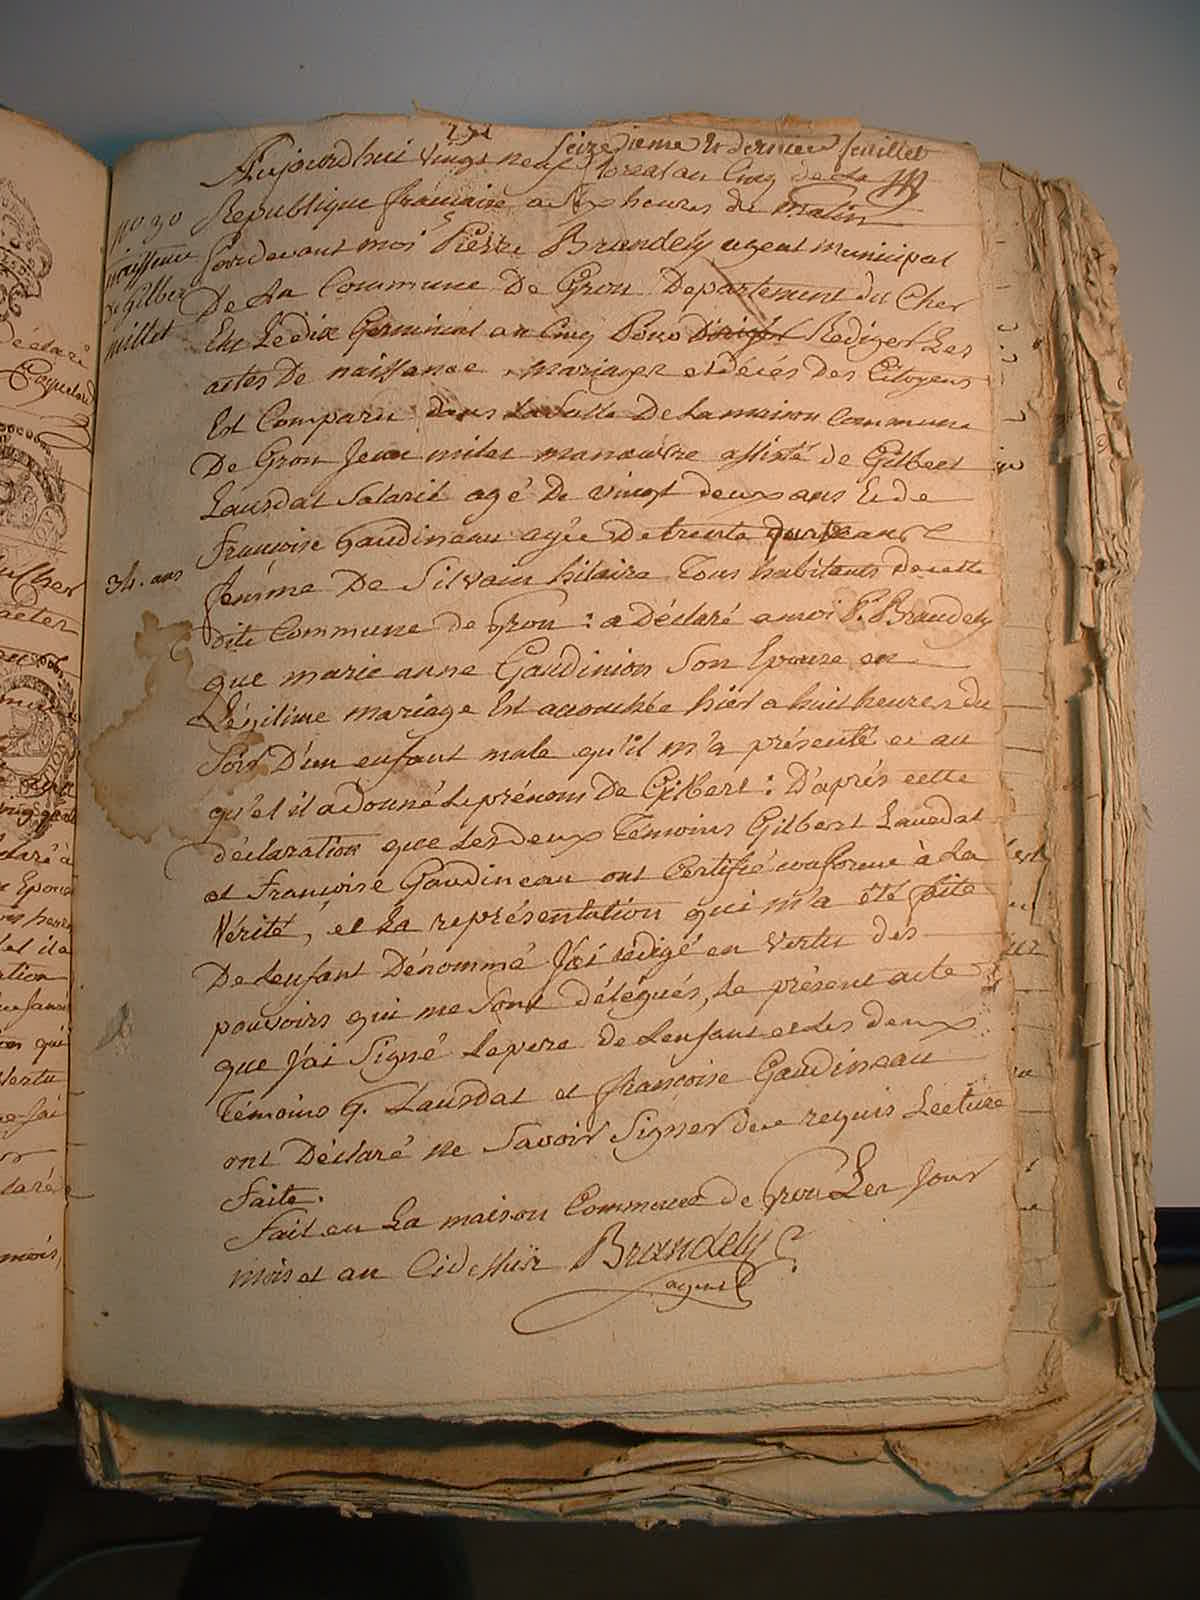 271
Seizedieme et dernier feuillet
Aujourdhui vingt neuf floreal an Cinq de la
Republique française a Six heures du matin
pardevant moi Pierre Brandely agent municipal
De La Commune De Gron Departement du Cher
Elu Ledix Germinal an Cinq Pour Rediger Les
actes De naissance mariages et décés des Citoyens
Est Comparu dans La Salle De La maison Commune
De Gron Jean milet manœuvre assisté de Gilbert
Laurdat Salarié agé De vingt deux ans Et de
Françoise Gaudineau agée De trente quatre ans
femme De Silvain hilaire Tous habitants de cette
dite Commune de Gron : a Déclaré a moi P. Brandely
que marie anne Gaudinion Son Epouse en
Légitime mariage Est accouchée hier a huit heures du
Soir D'un enfant male qu'il m'a présenté et au
qu'el il a donné Le prénom De Gilbert : D'aprés cette
déclaration que Les deux Témoins Gilbert Laurdat
et Françoise Gaudineau ont Certifié conforme à La
Vérité, et La représentation qui m'a été faite
De Lenfant Dénommé J'ai rédigé en Vertu des
pouvoirs qui me Sont délégués, Le présent acte
que J'ai Signé Le pere de Lenfant et Les deux
Témoins G. Laurdat et françoise Gaudineau
ont Déclaré ne Savoir Signer de ce requis Lecture
faite.
Fait en La maison Commune de Gron Les Jour
mois et an Cidessus Brandely
agent
no 30
naissance
de Gilber
millet
34. ans